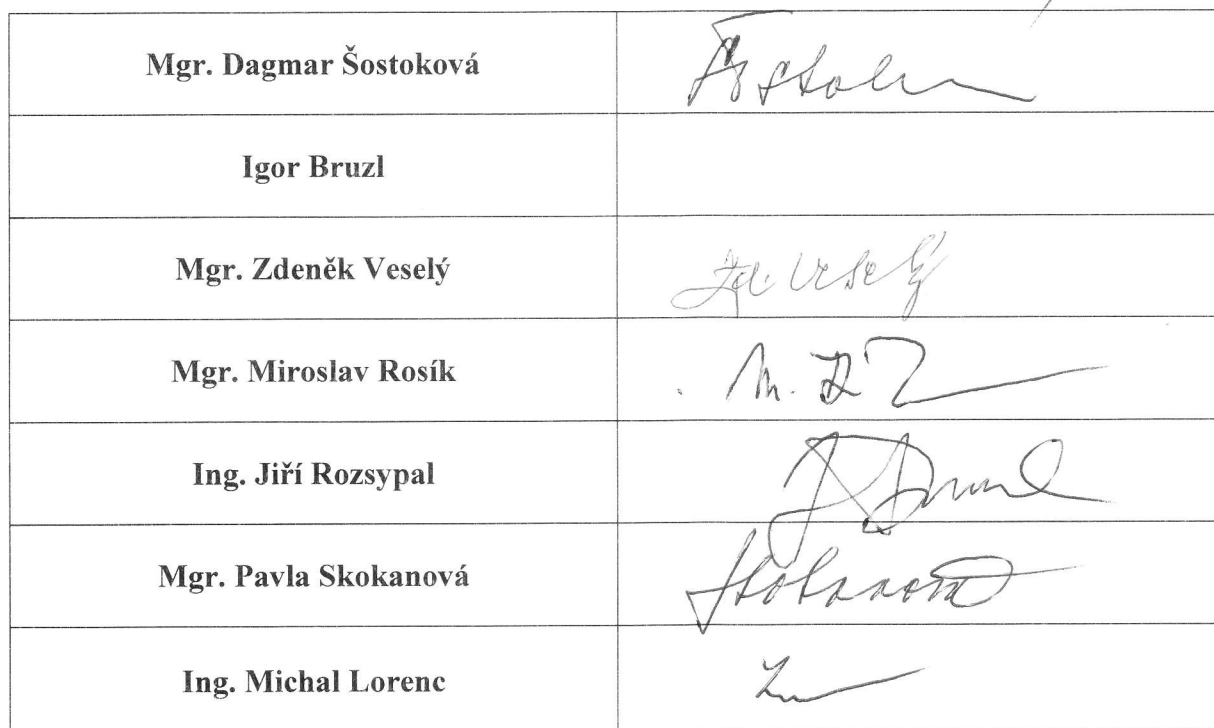 Mgr. Dagmar Šostoková
Igor Bruzl
Mgr. Zdeněk Veselý Zd. Veselý
Mgr. Miroslav Rosík
Ing. Jiří Rozsypal
Mgr. Pavla Skokanová Skokanová
Ing. Michal Lorenc